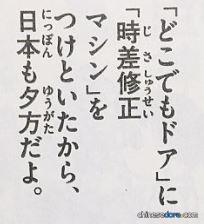 「どこでもドア」に
「時差修正
マシン」を
つけといたから、
日本も夕方だよ。
じさしゅうせい
にっぽん
ゆうがた
chinesedora.com